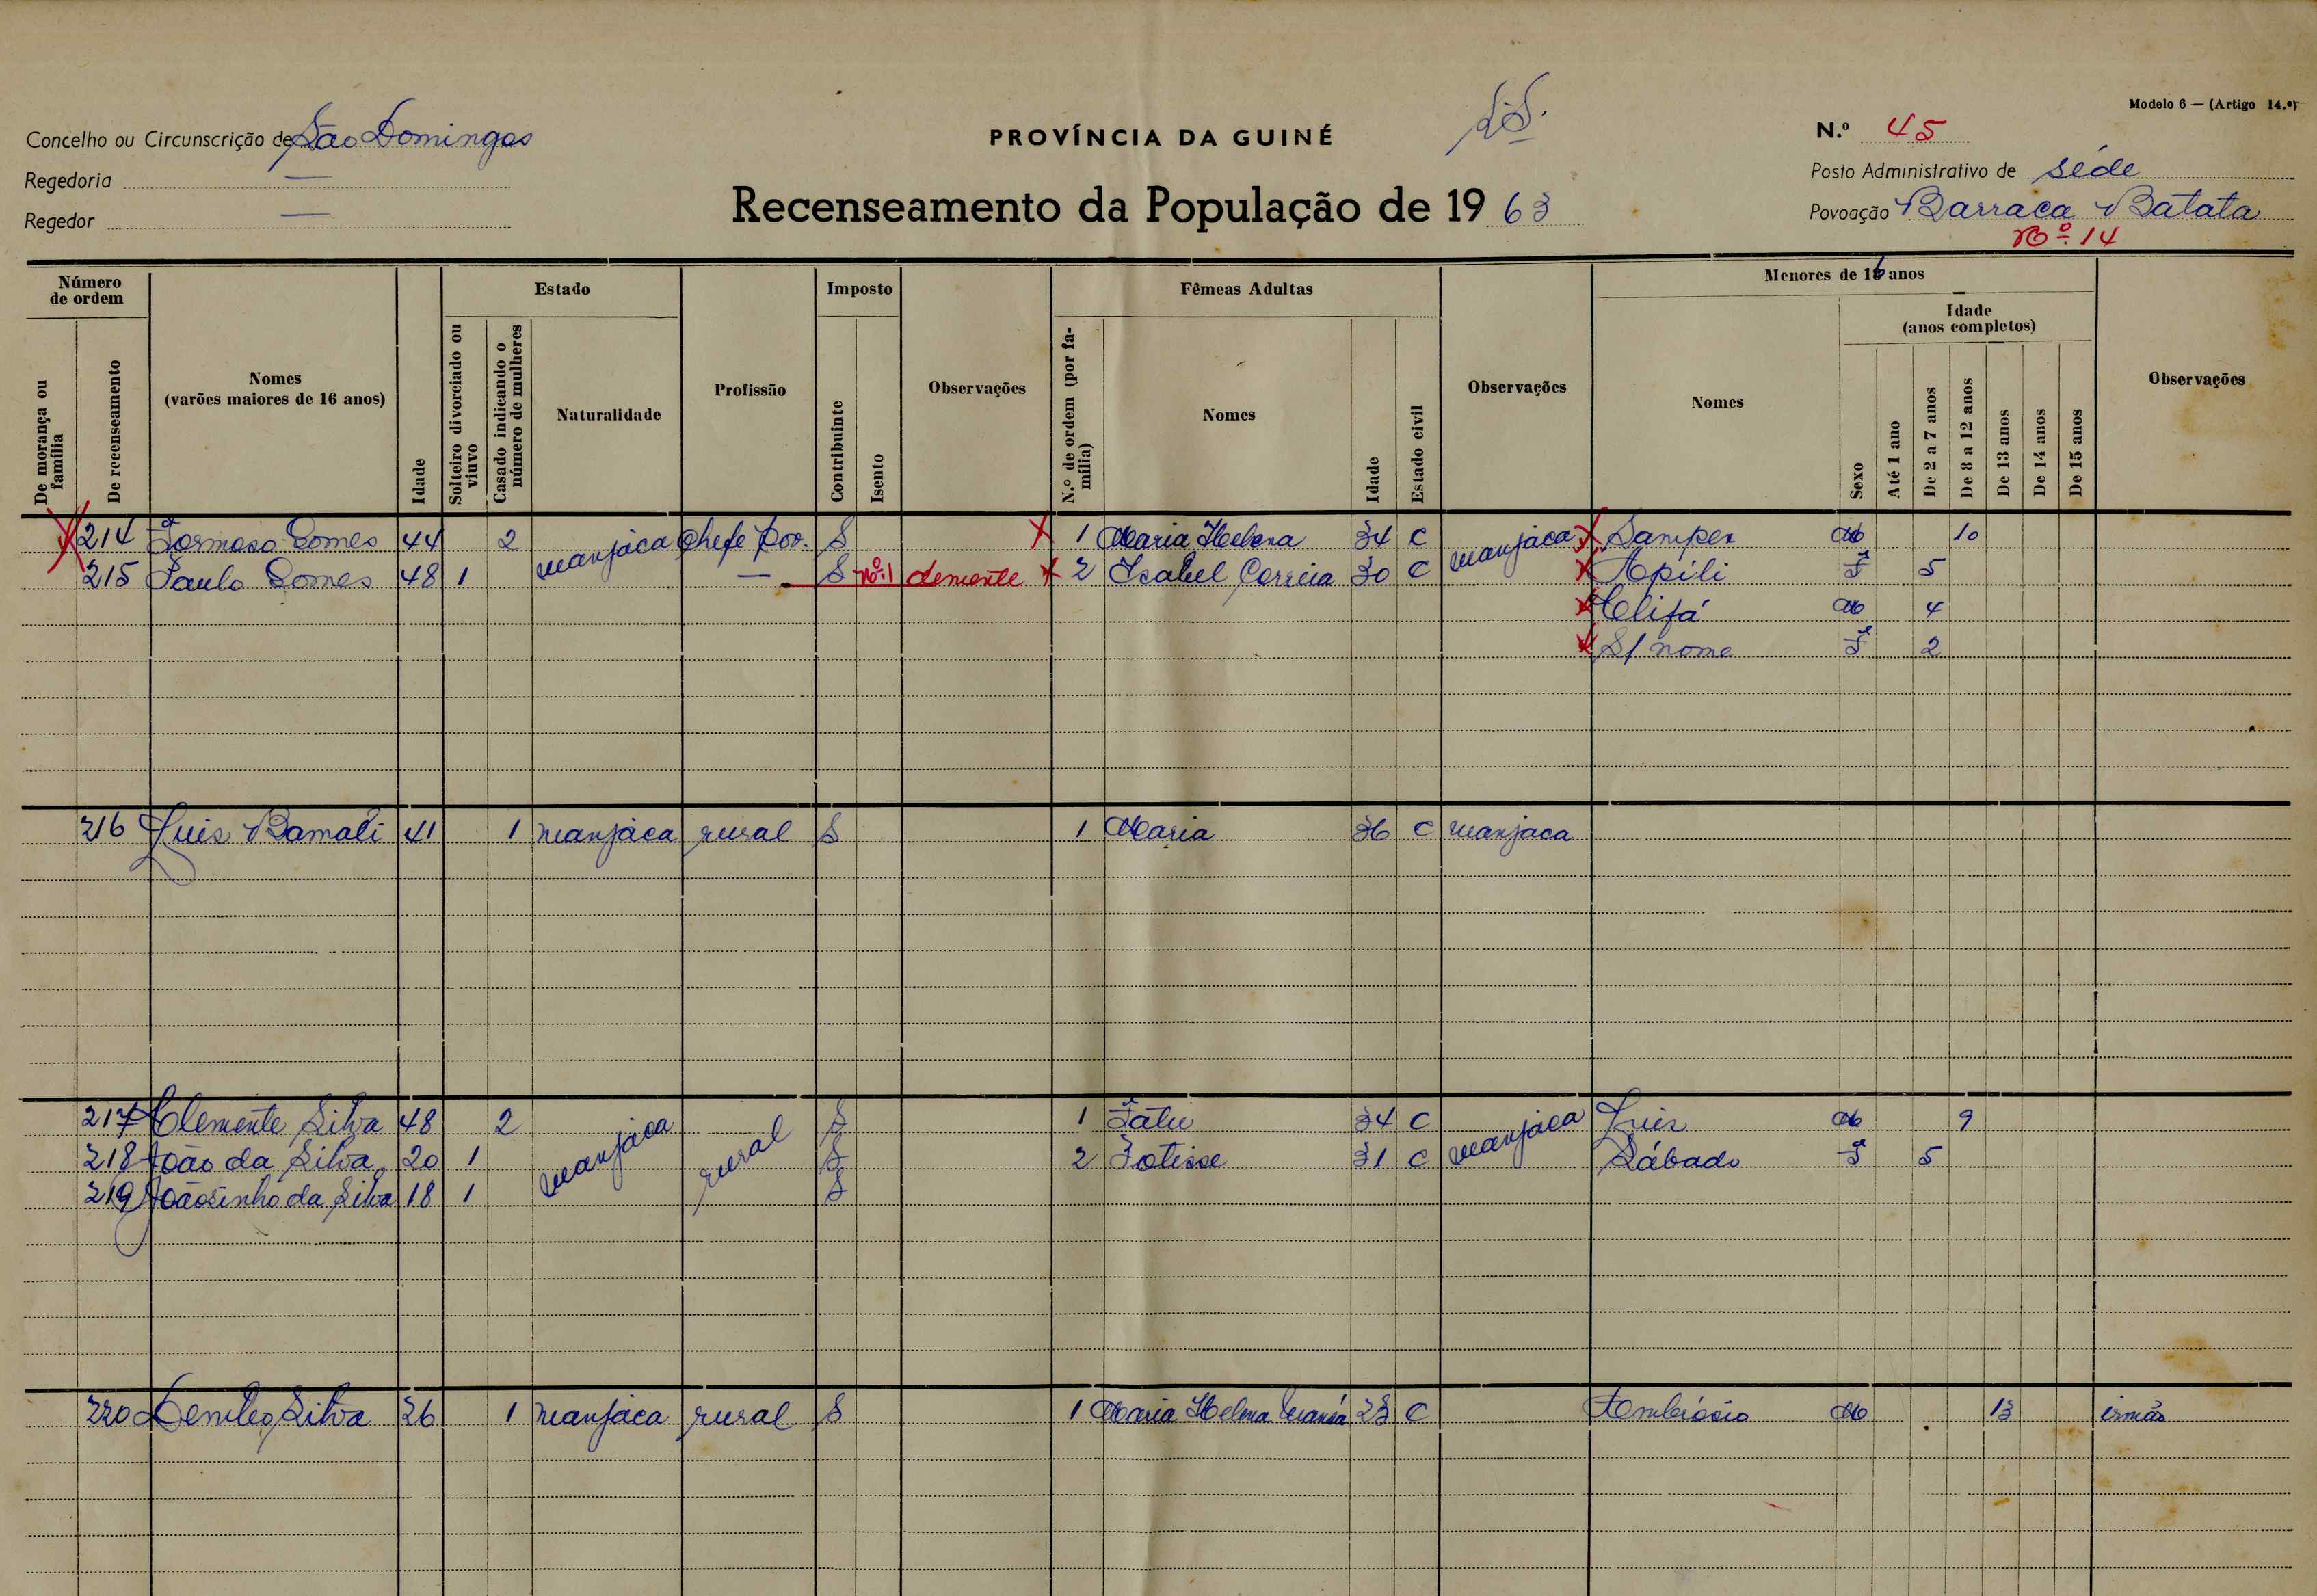 Modelo 6 — (Artigo 14.º)
Concelho ou Circunscrição de São Domingos
PROVÍNCIA DA GUINÉ
N.º 45
Regedoria —
Posto Administrativo de Séde
Regedor —
Recenseamento da População de 1963
Povoação Barraca Batata
Nº 14
Número de ordem
De morança ou família
De recenseamento
Nomes
(varões maiores de 16 anos)
Idade
Estado
Solteiro divorciado ou viuvo
Casado indicando o número de mulheres
Naturalidade
Profissão
Imposto
Contribuinte
Isento
Observações
Fêmeas Adultas
N.º de ordem (por família)
Nomes
Idade
Estado civil
Observações
Menores de 16 anos
Nomes
Sexo
Idade
(anos completos)
Até 1 ano
De 2 a 7 anos
De 8 a 12 anos
De 13 anos
De 14 anos
De 15 anos
Observações
214 Formoso Gomes 44 2 manjaca Chefe Pov. S 1 Maria Helena 34 C manjaca Samper M 10
215 Paulo Gomes 48 1 — S nº 1 demente 2 Isabel Correia 30 C Apili F 5
Clifá M 4
S/ nome F 2
216 Luis Bamali 41 1 manjaca rural S 1 Maria 36 C manjaca
217 Clemente Silva 48 2 manjaca rural S 1 Fatu 34 C manjaca Luis M 9
218 João da Silva 20 1 S 2 Fotisse 31 C Sábado F 5
219 Joãosinho da Silva 18 1 S
220 Silva 26 1 manjaca rural S 1 Maria Helena 23 C Ambrósio M 13 irmão